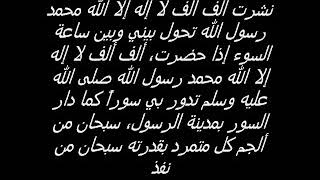 نشرت ألف ألف لا إله إلا الله محمد
رسول الله تحول بيني وبين ساعة
السوء إذا حضرت، ألف ألف لا إله
إلا الله محمد رسول الله صلى الله
عليه وسلم تدور بي سوراً كما دار
السور بمدينة الرسول، سبحان من
ألجم كل متمرد بقدرته سبحان من
نفذ